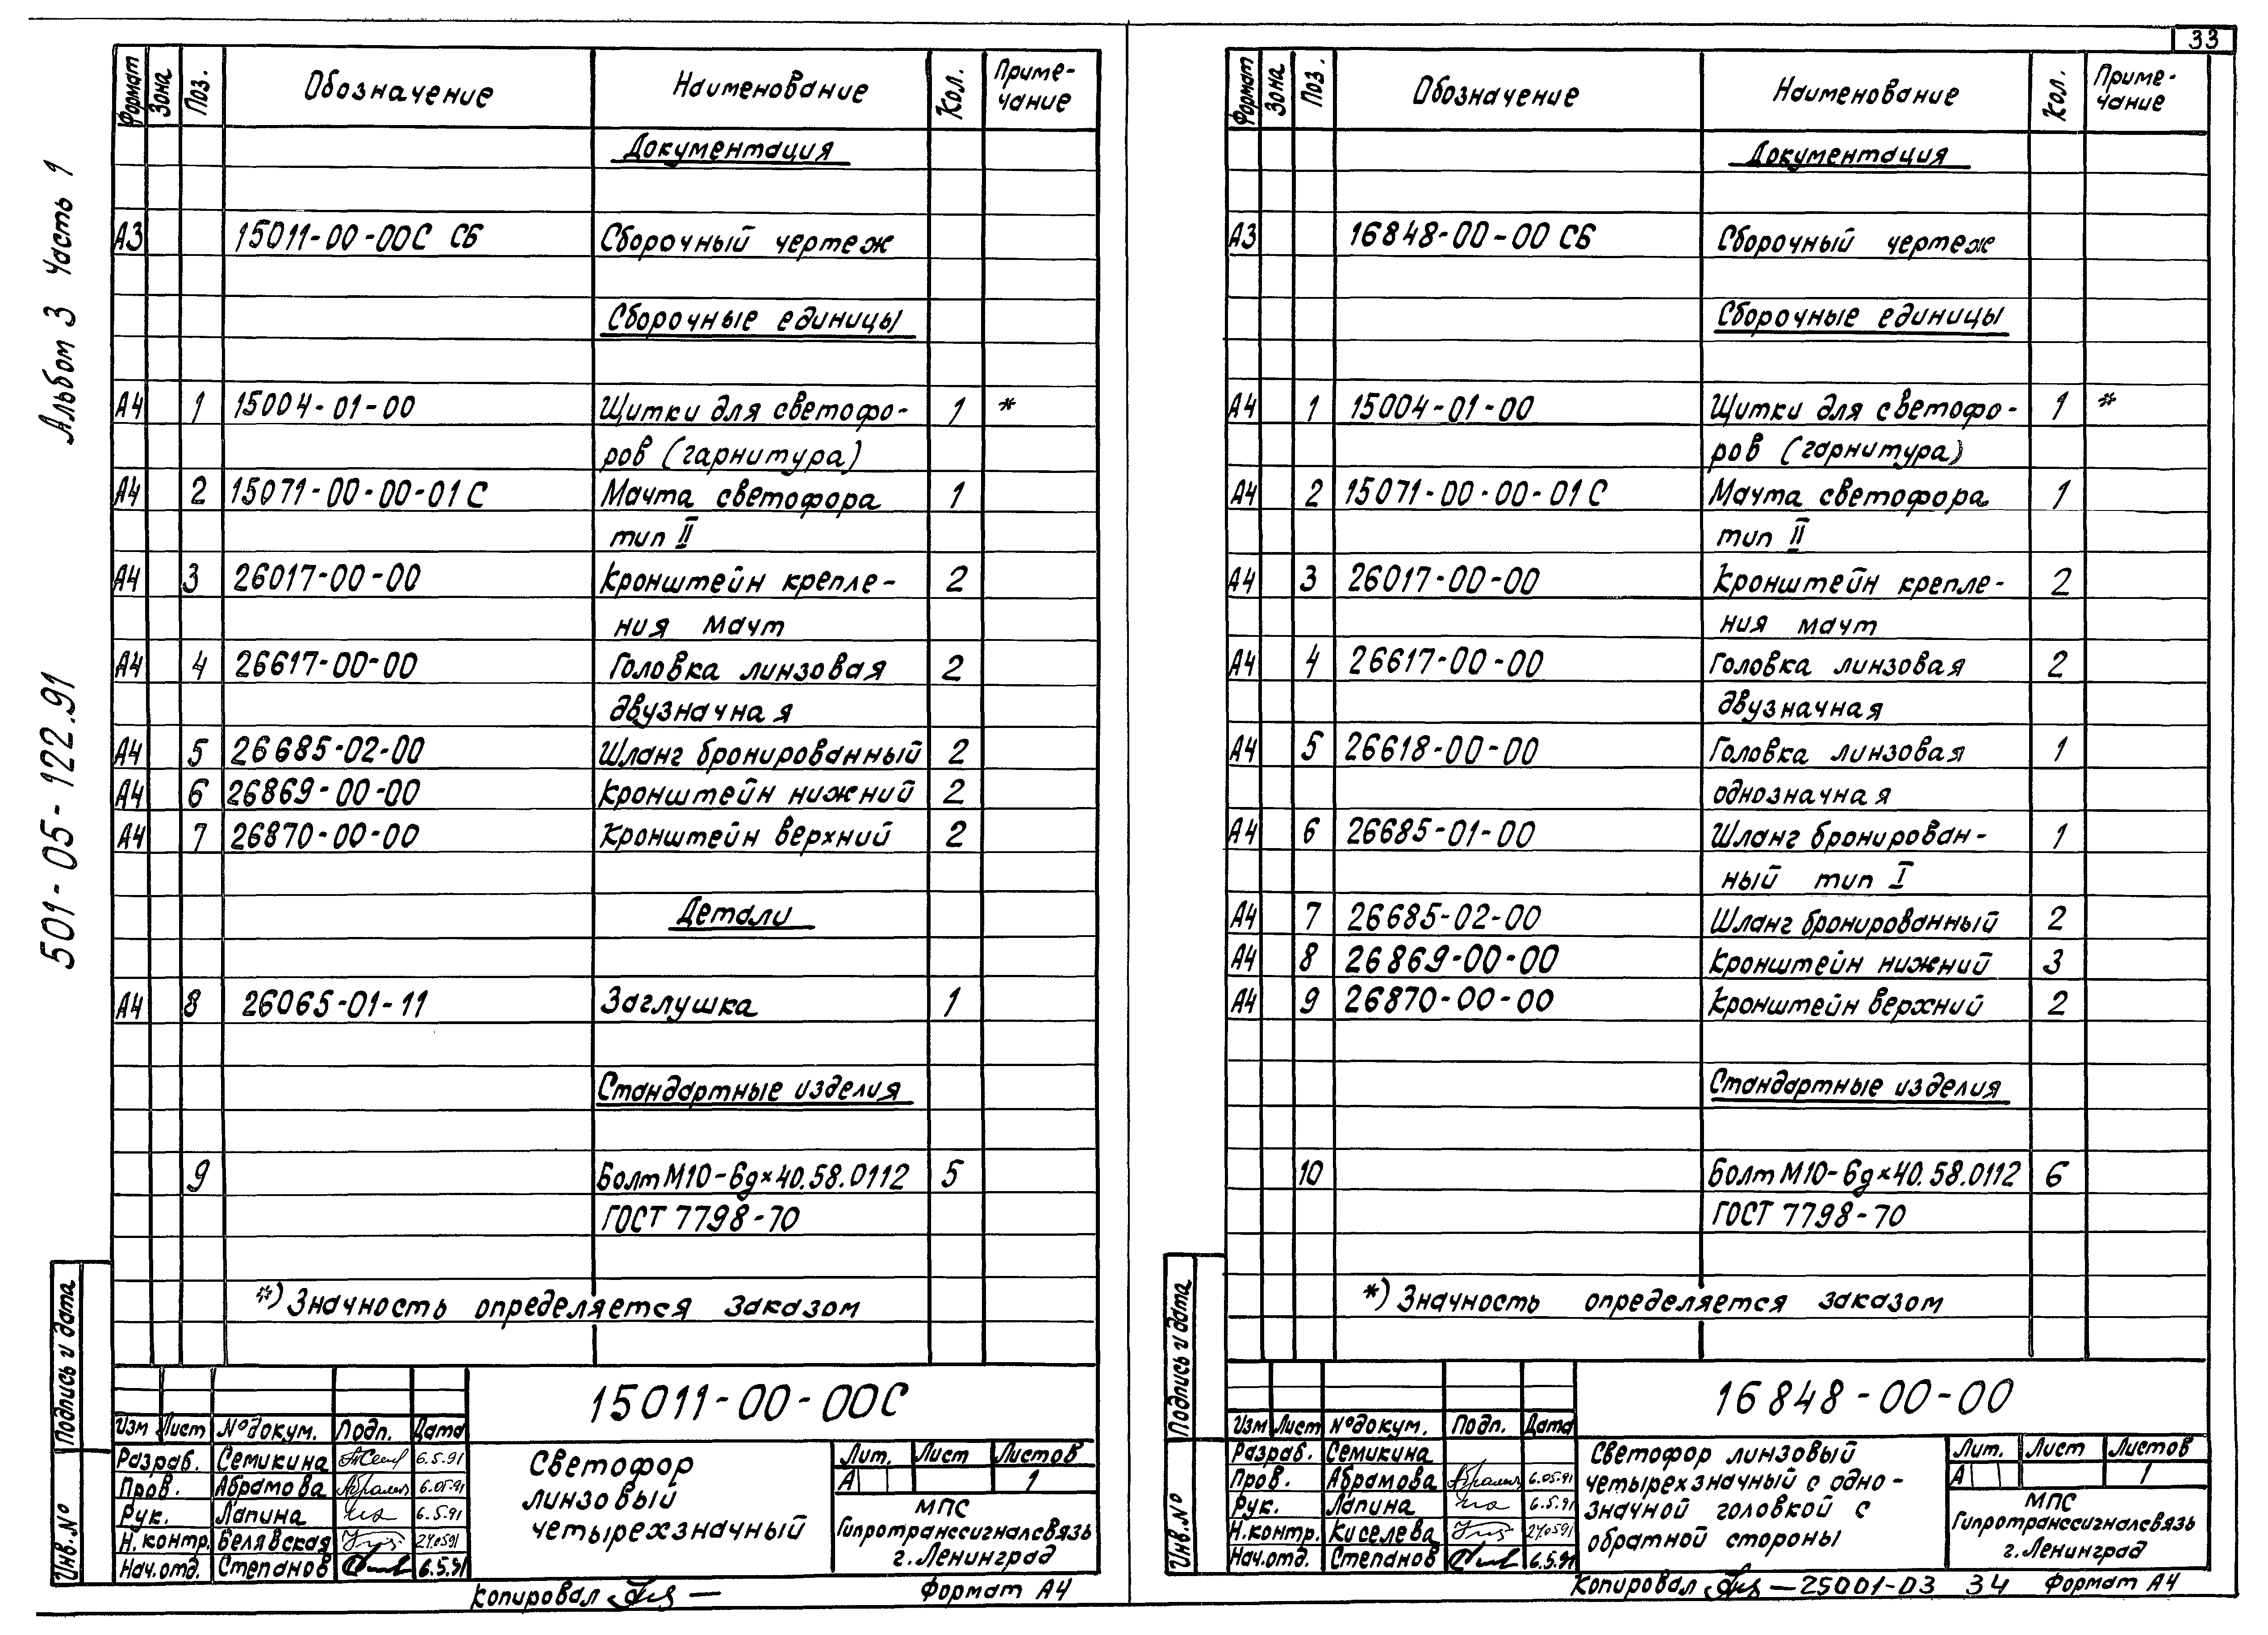 33
Альбом 3 Часть 1
501-05-122.91
Формат Зона Поз. Обозначение Наименование Кол. Приме-
чание
Документация
А3 15011-00-00С СБ Сборочный чертеж
Сборочные единицы
А4 1 15004-01-00 Щитки для светофо- 1 *
ров (гарнитура)
А4 2 15071-00-00-01С Мачта светофора 1
тип II
А4 3 26017-00-00 Кронштейн крепле- 2
ния мачт
А4 4 26617-00-00 Головка линзовая 2
двузначная
А4 5 26685-02-00 Шланг бронированный 2
А4 6 26869-00-00 Кронштейн нижний 2
А4 7 26870-00-00 Кронштейн верхний 2
Детали
А4 8 26065-01-11 Заглушка 1
Стандартные изделия
9 Болт М10-6g×40.58.0112 5
ГОСТ 7798-70
*) Значность определяется заказом
Подпись и дата
Инв. №
15011-00-00С
Изм Лист № докум. Подп. Дата
Разраб. Семикина 6.5.91
Пров. Абрамова 6.05.91
Рук. Лапина 6.5.91
Н.контр. Белявская 24.05.91
Нач.отд. Степанов 6.5.91
Светофор
линзовый
четырехзначный
Лит. Лист Листов
А 1
МПС
Гипротранссигналсвязь
г. Ленинград
Копировал Формат А4
Формат Зона Поз. Обозначение Наименование Кол. Приме-
чание
Документация
А3 16848-00-00 СБ Сборочный чертеж
Сборочные единицы
А4 1 15004-01-00 Щитки для светофо- 1 *
ров (гарнитура)
А4 2 15071-00-00-01С Мачта светофора 1
тип II
А4 3 26017-00-00 Кронштейн крепле- 2
ния мачт
А4 4 26617-00-00 Головка линзовая 2
двузначная
А4 5 26618-00-00 Головка линзовая 1
однозначная
А4 6 26685-01-00 Шланг бронирован- 1
ный тип I
А4 7 26685-02-00 Шланг бронированный 2
А4 8 26869-00-00 Кронштейн нижний 3
А4 9 26870-00-00 Кронштейн верхний 2
Стандартные изделия
10 Болт М10-6g×40.58.0112 6
ГОСТ 7798-70
*) Значность определяется заказом
Подпись и дата
Инв. №
16848-00-00
Изм Лист № докум. Подп. Дата
Разраб. Семикина
Пров. Абрамова 6.05.91
Рук. Лапина 6.5.91
Н.контр. Киселева 24.05.91
Нач.отд. Степанов 6.5.91
Светофор линзовый
четырехзначный с одно-
значной головкой с
обратной стороны
Лит. Лист Листов
А 1
МПС
Гипротранссигналсвязь
г. Ленинград
Копировал 25001-03 34 Формат А4